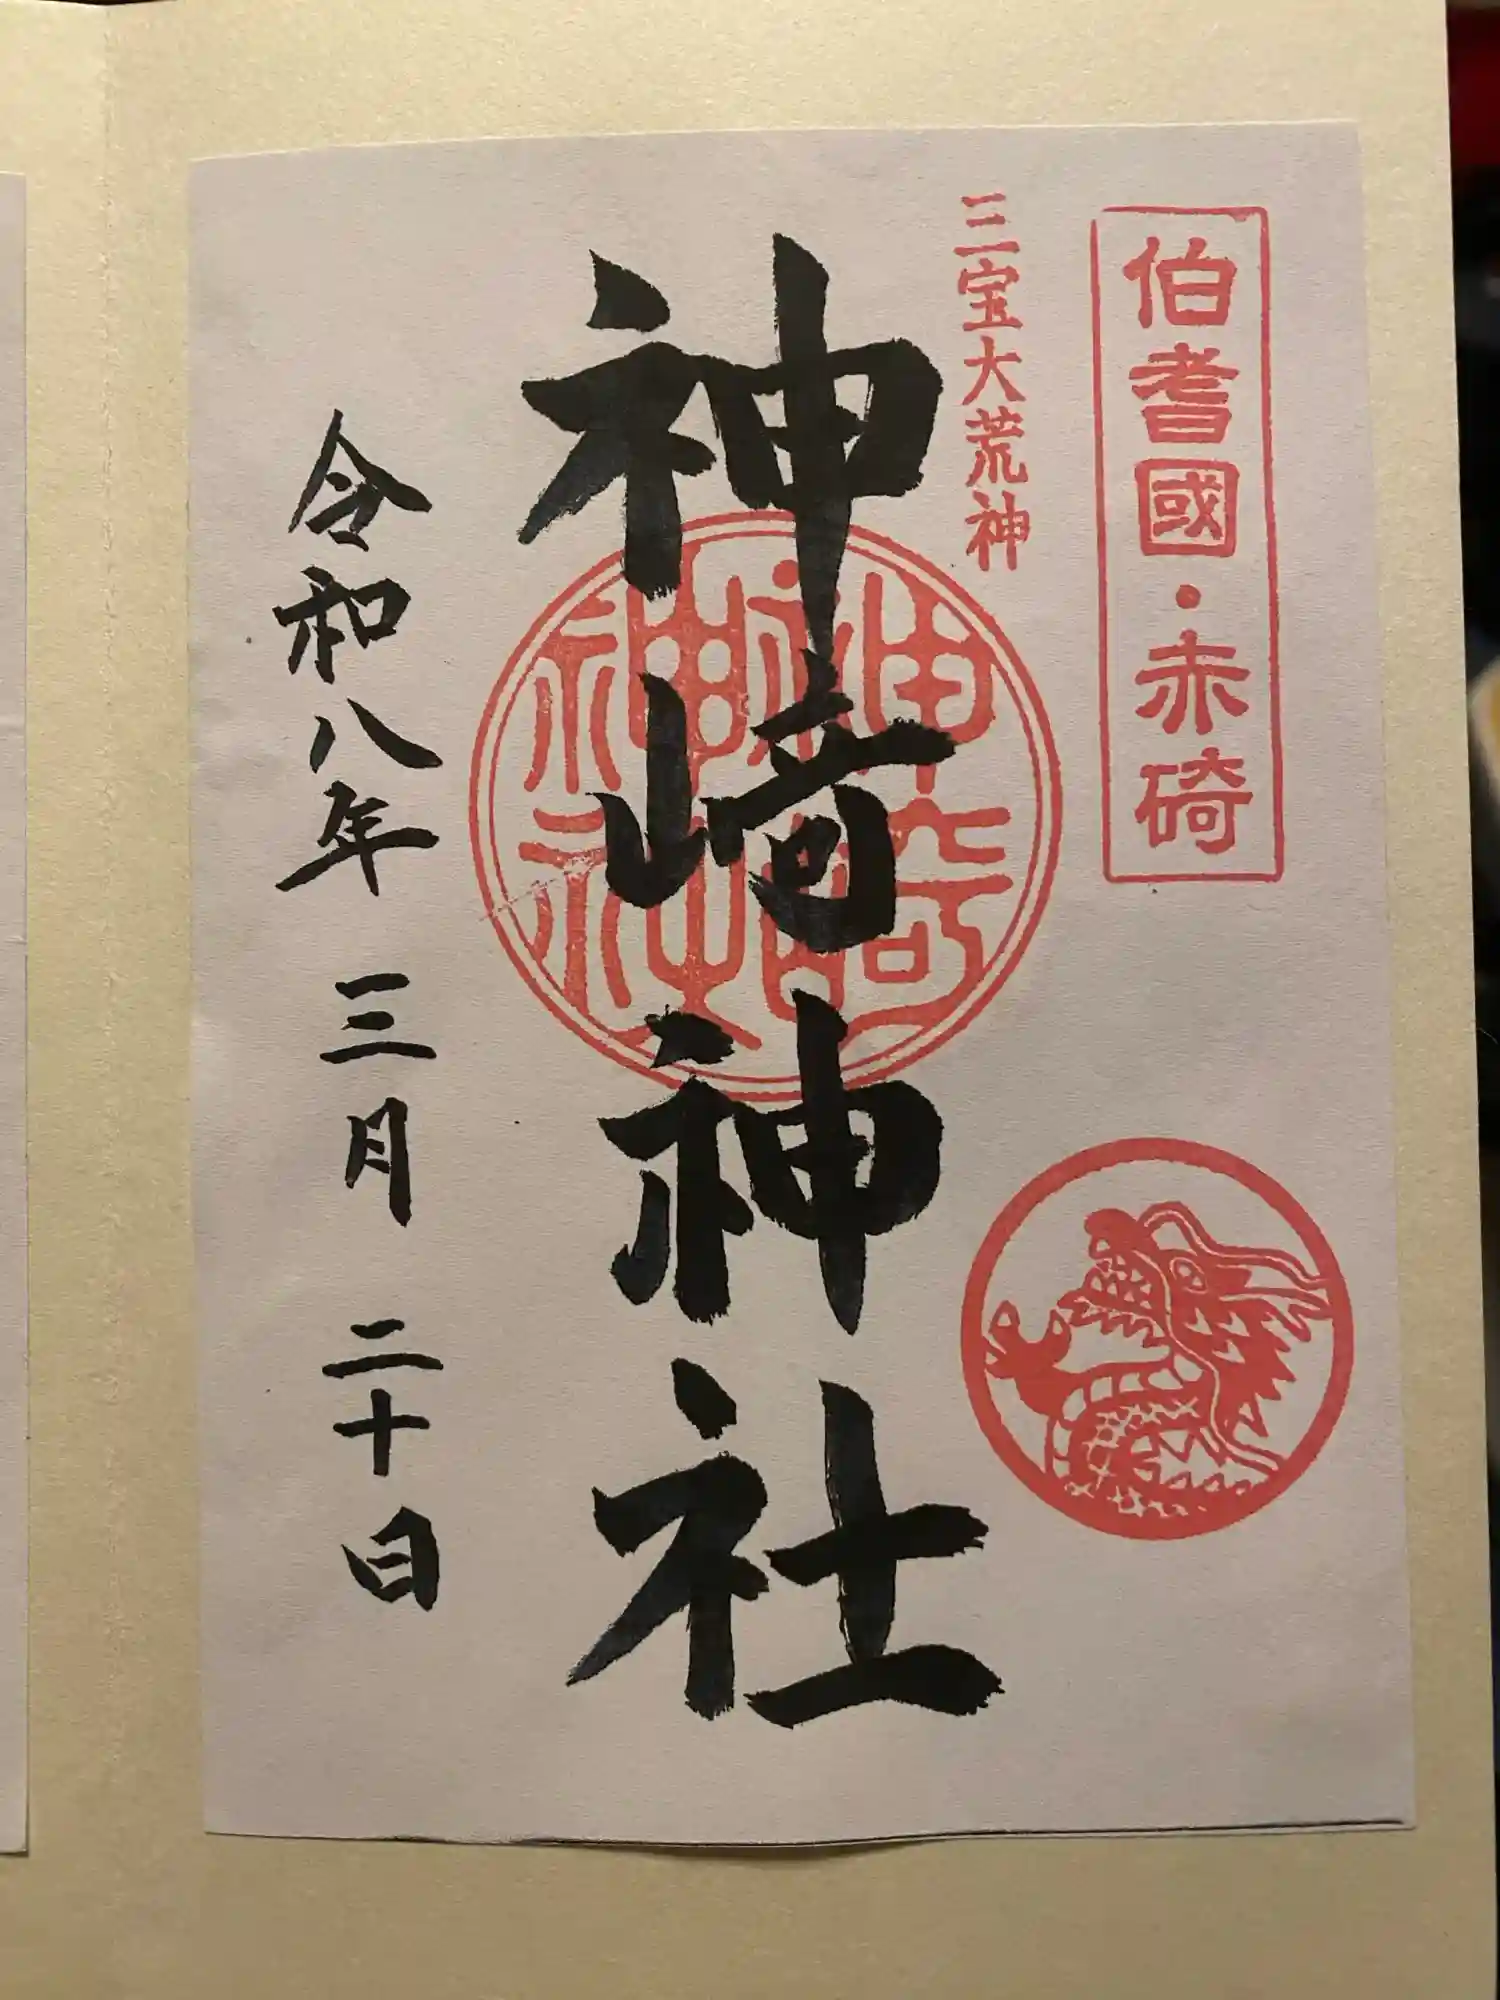 伯耆國・赤碕
三宝大荒神
神﨑神社
神﨑神社
令和八年 三月 二十日